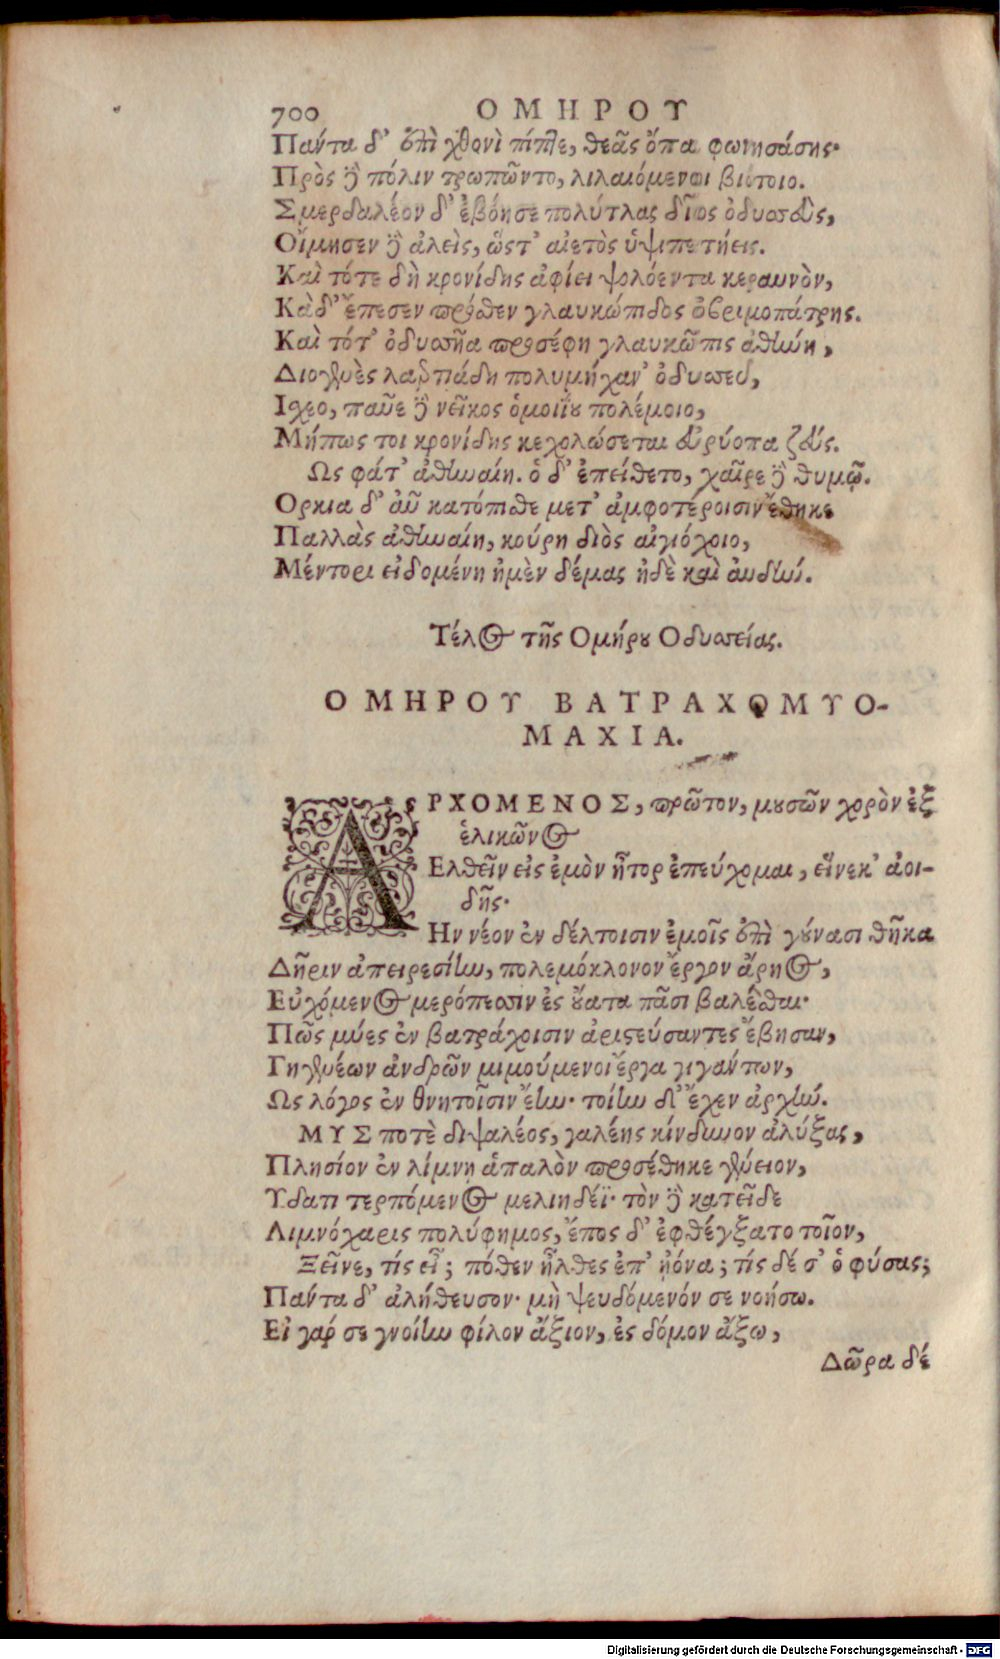 700 ΟΜΗΡΟΥ
Πάντα δ' ἐπὶ χθονὶ πίπτε, θεᾶς ὄπα φωνησάσης·
Πρὸς δὲ πόλιν τρωπῶντο, λιλαιόμενοι βιότοιο.
Σμερδαλέον δ' ἐβόησε πολύτλας δῖος ὀδυσσεὺς,
Οἴμησεν δὲ ἀλεὶς, ὥστ' αἰετὸς ὑψιπετήεις.
Καὶ τότε δὴ κρονίδης ἀφίει ψολόεντα κεραυνὸν,
Κὰδ' ἔπεσεν πρόσθεν γλαυκώπιδος ὀβριμοπάτρης.
Καὶ τότ' ὀδυσσῆα προσέφη γλαυκῶπις ἀθήνη,
Διογενὲς λαερτιάδη πολυμήχαν' ὀδυσσεῦ,
Ισχεο, παῦε δὲ νεῖκος ὁμοιΐου πολέμοιο,
Μήπως τοι κρονίδης κεχολώσεται εὐρύοπα ζεύς.
Ως φάτ' ἀθηναίη. ὁ δ' ἐπείθετο, χαῖρε δὲ θυμῷ.
Ορκια δ' αὖ κατόπισθε μετ' ἀμφοτέροισιν ἔθηκε
Παλλὰς ἀθηναίη, κούρη διὸς αἰγιόχοιο,
Μέντορι εἰδομένη ἠμὲν δέμας ἠδὲ καὶ αὐδήν.
Τέλος τῆς Ομήρου Οδυσσείας.
ΟΜΗΡΟΥ ΒΑΤΡΑΧΟΜΥΟ-
ΜΑΧΙΑ.
ΑΡΧΟΜΕΝΟΣ, πρῶτον, μουσῶν χορὸν ἐξ
ἑλικῶνος
Ελθεῖν εἰς ἐμὸν ἦτορ ἐπεύχομαι, εἵνεκ' ἀοι-
δῆς·
Ην νέον ἐν δέλτοισιν ἐμοῖς ἐπὶ γούνασι θῆκα
Δῆριν ἀπειρεσίην, πολεμόκλονον ἔργον ἄρηος,
Εὐχόμενος μερόπεσσιν ἐς οὔατα πᾶσι βαλέσθαι·
Πῶς μύες ἐν βατράχοισιν ἀριστεύσαντες ἔβησαν,
Γηγενέων ἀνδρῶν μιμούμενοι ἔργα γιγάντων,
Ως λόγος ἐν θνητοῖσιν ἔην· τοίην δ' ἔχεν ἀρχήν.
ΜΥΣ ποτὲ διψαλέος, γαλέης κίνδυνον ἀλύξας,
Πλησίον ἐν λίμνῃ ἁπαλὸν προσέθηκε γένειον,
Υδατι τερπόμενος μελιηδέϊ· τὸν δὲ κατεῖδε
Λιμνόχαρις πολύφημος, ἔπος δ' ἐφθέγξατο τοῖον,
Ξεῖνε, τίς εἶ; πόθεν ἦλθες ἐπ' ᾐόνα; τίς δέ σ' ὁ φύσας;
Πάντα δ' ἀλήθευσον· μὴ ψευδόμενόν σε νοήσω.
Εἰ γάρ σε γνοίην φίλον ἄξιον, ἐς δόμον ἄξω,
Δῶρα δέ
Digitalisierung gefördert durch die Deutsche Forschungsgemeinschaft - DFG